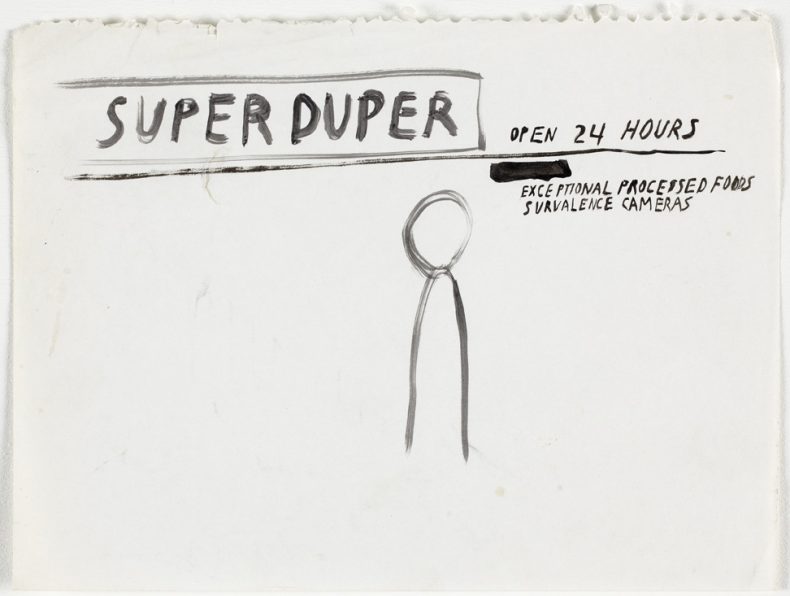 SUPER DUPER
OPEN 24 HOURS
EXCEPTIONAL PROCESSED FOODS
SURVALENCE CAMERAS